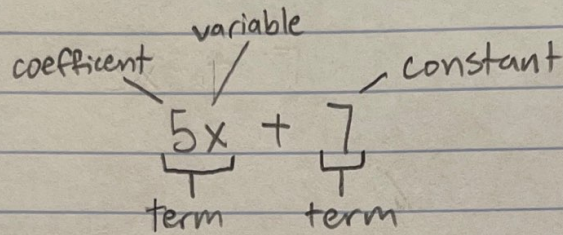 variable
coefficent
constant
5x + 7
term
term